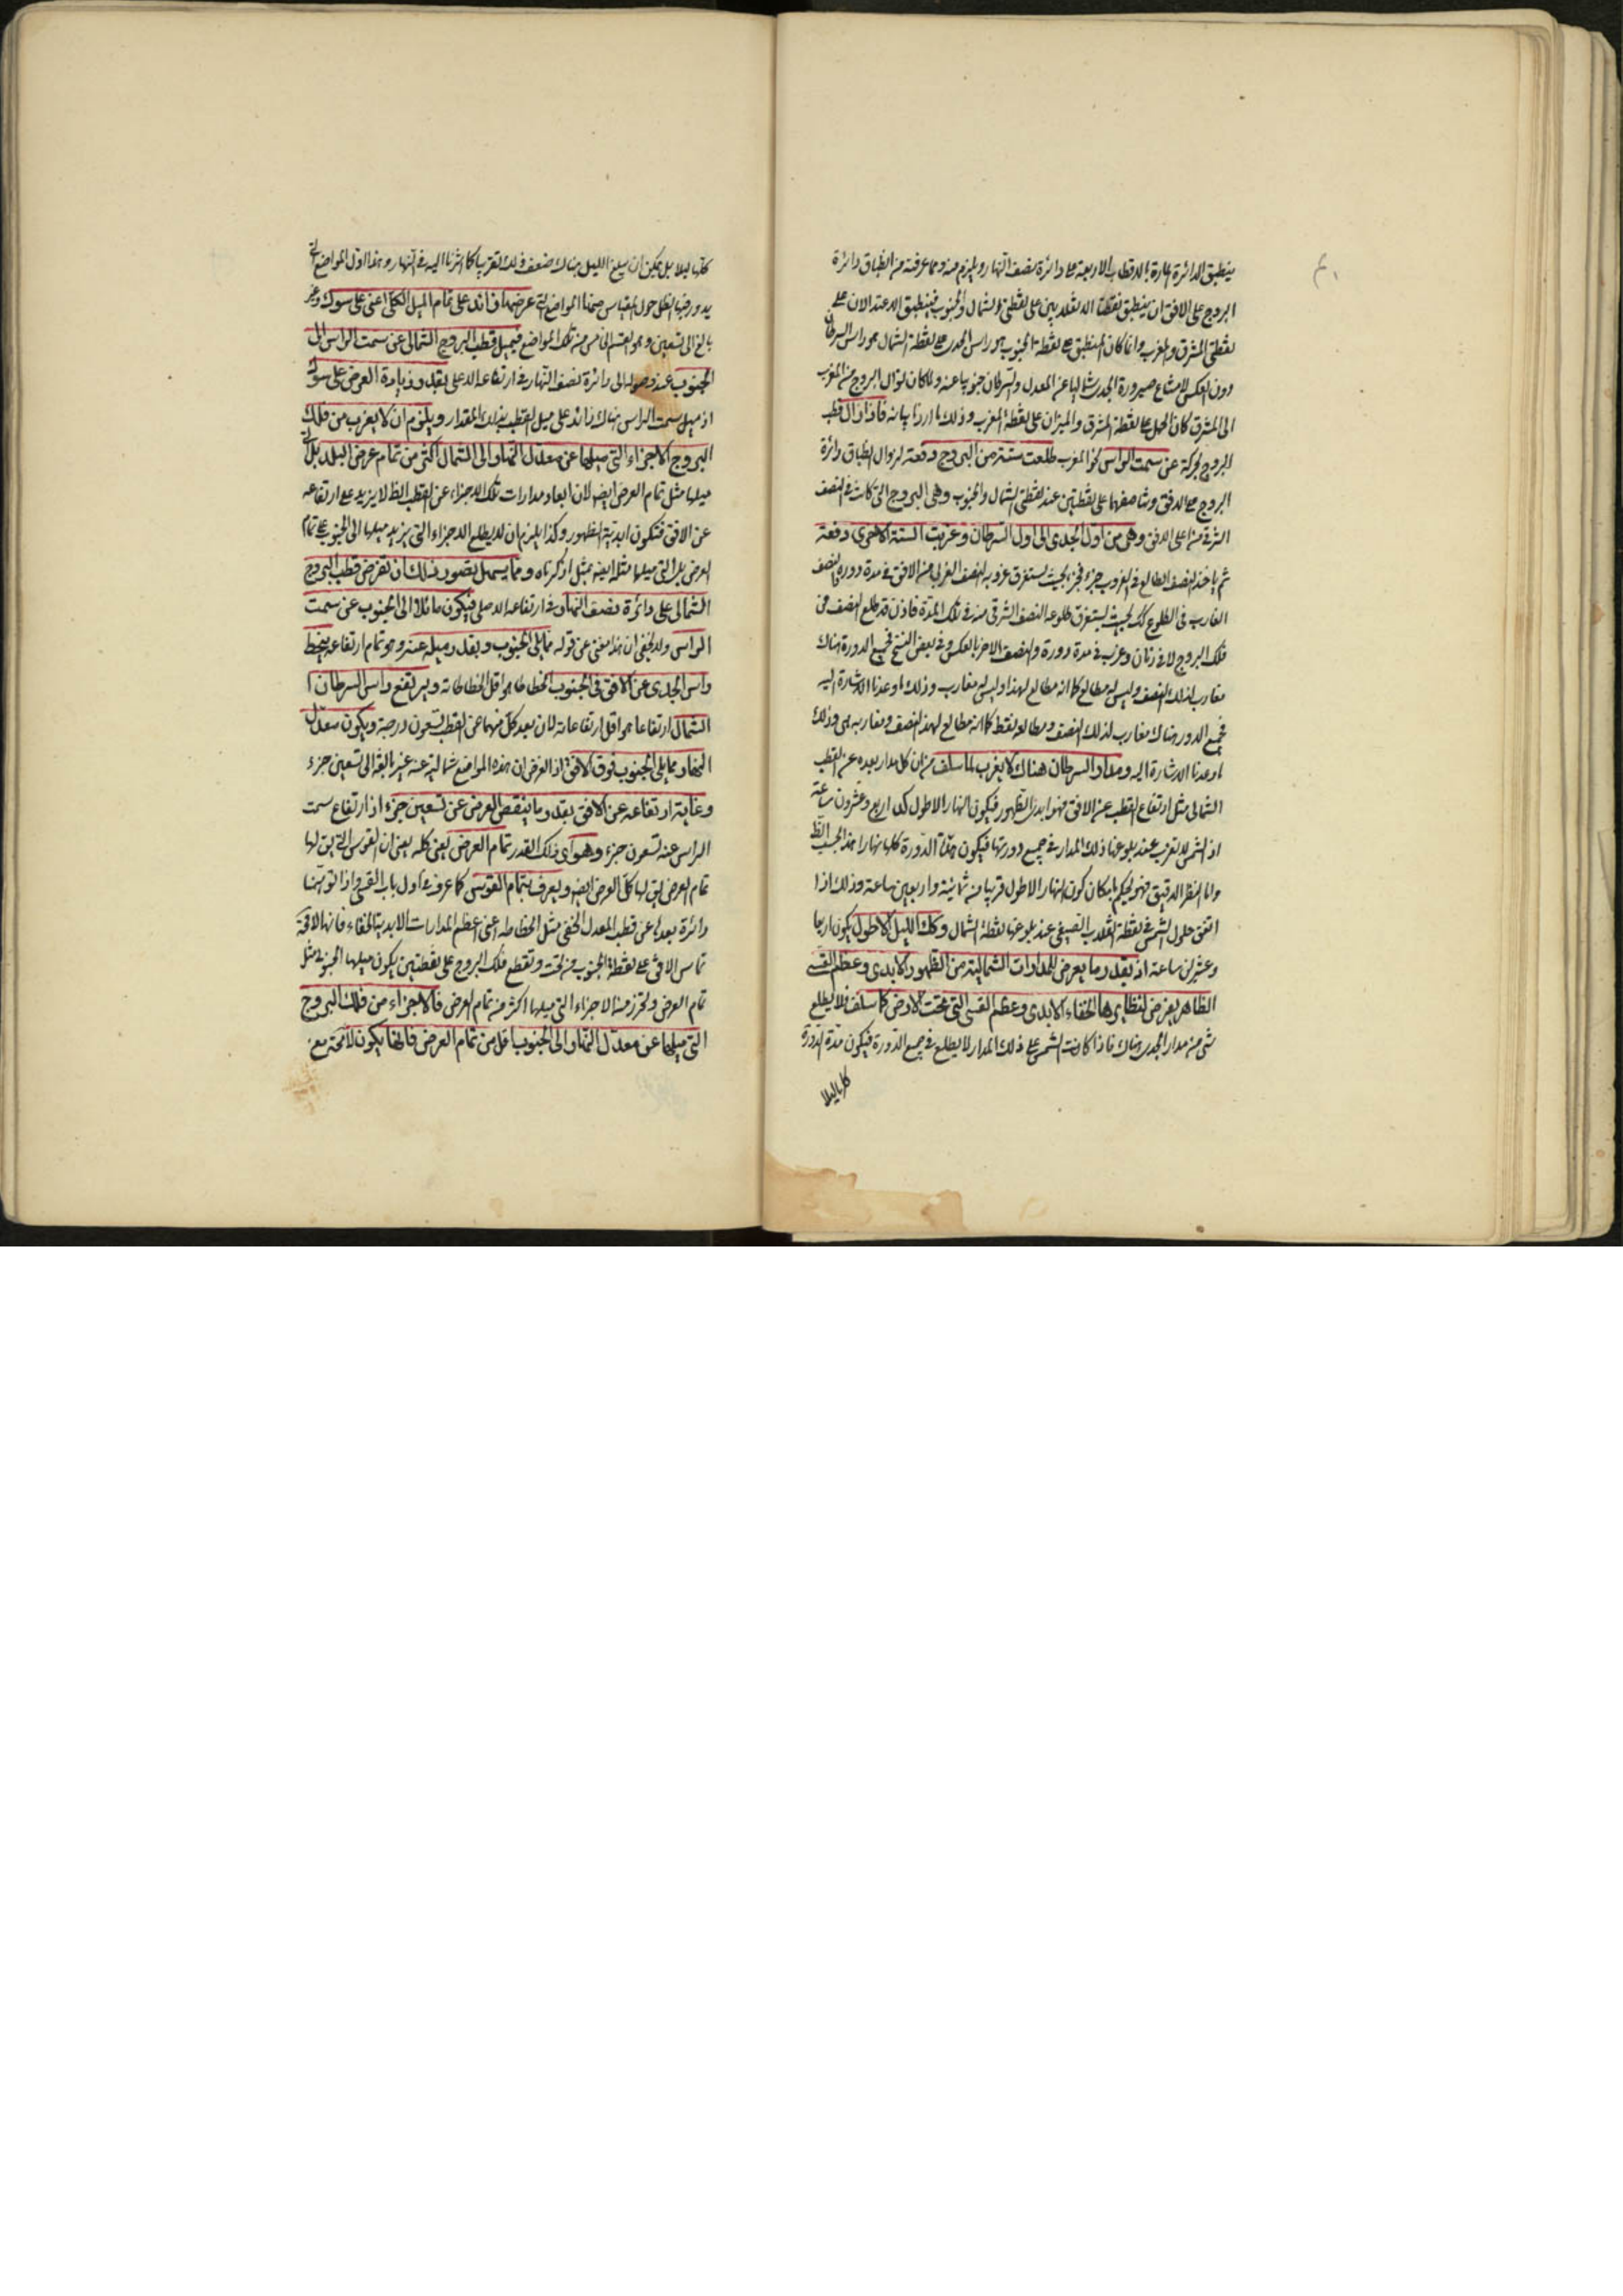 ينطبق الدائرة المارة بالاقطاب الاربعة على دائرة نصف النهار ويلزم منه ومما عرفته من انطباق دائرة
البروج على الافق ان ينطبق نقطتا الانقلابين على نقطتى الشمال والجنوب فينطبق الاعتدالان على
نقطتى المشرق والمغرب وانما كان المنطبق على نقطة الجنوب هو راس الجدى وعلى نقطة الشمال هو راس السرطان
دون العكس لامتناع صيرورة الجدى شماليا عن المعدل والسرطان جنوبيا عنه ولما كان توالى البروج من المغرب
الى المشرق كان الحمل على نقطة المشرق والميزان على نقطة المغرب وذلك ما اردنا بيانه فاذا زال قطب
البروج بحركة عن سمت الراس نحو المغرب طلعت ستة من البروج دفعة لزوال انطباق دائرة
البروج على الافق وتناصفهما على نقطتين عند نقطتى الشمال والجنوب وهى البروج التى كانت فى النصف
الشرقى منها على الافق وهى من اول الجدى الى اول السرطان وغربت الستة الاخرى دفعة
ثم ياخذ النصف الطالع فى الغروب جزء فجزء بحيث يستغرق غروبه النصف الغربى من الافق فى مدة دورة والنصف
الغارب فى الطلوع كذلك بحيث يستغرق طلوعه النصف الشرقى منه فى تلك المدة فاذن قد طلع نصف من
فلك البروج لا فى زمان وغرب فى مدة دورة والنصف الاخر بالعكس وفى بعض النسخ فجميع الدورة هناك
مغارب لذلك النصف وليس له مطالع كما انه مطالع لهذا وليس له مغارب وذلك ما وعدنا الاشارة اليه
فجميع الدور هناك مغارب لذلك النصف ومطالعه نقط كما انه مطالع لهذا النصف ومغاربه هى وذلك
ما وعدنا الاشارة اليه ومدار السرطان هناك لا يغرب لما سلف من ان كل مدار بعده عن القطب
الشمالى مثل ارتفاع القطب عن الافق فهو ابدى الظهور فيكون النهار الاطول كله اربع وعشرون ساعة
اذ الشمس لا تغرب عند بلوغها ذلك المدار فى جميع دورتها فيكون مدة الدورة كلها نهارا هذا بحسب الظ
واما النظر الدقيق فهو يحكم بامكان كون النهار الاطول قريبا من ثمانية واربعين ساعة وذلك اذا
اتفق حلول الشمس فى نقطة الانقلاب الصيفى عند بلوغها نقطة الشمال وكذا الليل الاطول يكون اربعا
وعشرين ساعة اذ بقدر ما يعرض للمدارات الشمالية من الظهور الابدى وعظم القسى
الظاهر يعرض لنظايرها الخفاء الابدى وعظم القسى التى تحت الارض كما سلف فلا يطلع
شئ من مدار الجدى هناك فاذا كانت الشمس على ذلك المدار لا يطلع فى جميع الدورة فيكون مدة الدورة
كلها ليلا
كلها ليلا بل يمكن ان يبلغ الليل هناك ضعف ذلك تقريبا كما اشرنا اليه فى النهار وهذا اول المواضع التى
يدور فيها الظل حول المقياس ومنها المواضع التى عرضها زائد على تمام الميل الكلى اعنى على سولد وغير
بالغ الى تسعين وهو القسم الخامس من تلك المواضع فيميل قطب البروج الشمالى عن سمت الراس الى
الجنوب عند وصوله الى دائرة نصف النهار فى ارتفاعه الاعلى بقدر زيادة العرض على سولد
اذ ميل سمت الراس هناك زائد على ميل القطب بذلك المقدار ويلزم ان لا يغرب من فلك
البروج الاجزاء التى ميلها عن معدل النهار الى الشمال اكثر من تمام عرض البلد بل التى
ميلها مثل تمام العرض ايضا لان ابعاد مدارات تلك الاجزاء عن القطب الظ لا يزيد على ارتفاعه
عن الافق فتكون ابدية الظهور وكذا يلزم ان لا يطلع الاجزاء التى يزيد ميلها الى الجنوب على تمام
العرض بل التى ميلها مثله ايضا بمثل ما ذكرناه ومما يسهل تصور ذلك ان تفرض قطب البروج
الشمالى على دائرة نصف النهار فى ارتفاعه الاعلى فيكون مائلا الى الجنوب عن سمت
الراس ولا يخفى ان هذا مغنى عن قوله مما يلى الجنوب وبقدر ميله عنه وهو تمام ارتفاعه ينحط
راس الجدى عن الافق فى الجنوب انحطاطا هو اقل انحطاطاته ويرتفع راس السرطان
الشمال ارتفاعا هو اقل ارتفاعاته لان بعد كل منهما عن القطب تسعون درجة ويكون معدل
النهار مما يلى الجنوب فوق الافق اذ الفرض ان هذه المواضع شمالية عنه غير بالغة الى تسعين جزء
وغاية ارتفاعه عن الافق بقدر ما ينقص العرض عن تسعين جزء اذ ارتفاع سمت
الراس عنه تسعون جزء وهو اى ذلك القدر تمام العرض يعنى كله يعنى ان القوس التى يق لها
تمام العرض يق لها كل العرض ايضا ويعرف بتمام القوس كما عرف فى اول باب القسى واذا توهمنا
دائرة بعدها عن قطب المعدل الخفى مثل انحطاطه اعنى اعظم المدارات الابدية الخفاء فانها لا محة
تماس الافق على نقطة الجنوب من تحت وتقطع فلك البروج على نقطتين يكون ميلهما الجنوبى مثل
تمام العرض وتحرز منه الاجزاء التى ميلها اكثر من تمام العرض فالاجزاء من فلك البروج
التى ميلها عن معدل النهار الى الجنوب اقل من تمام العرض فانها يكون لا محة مع